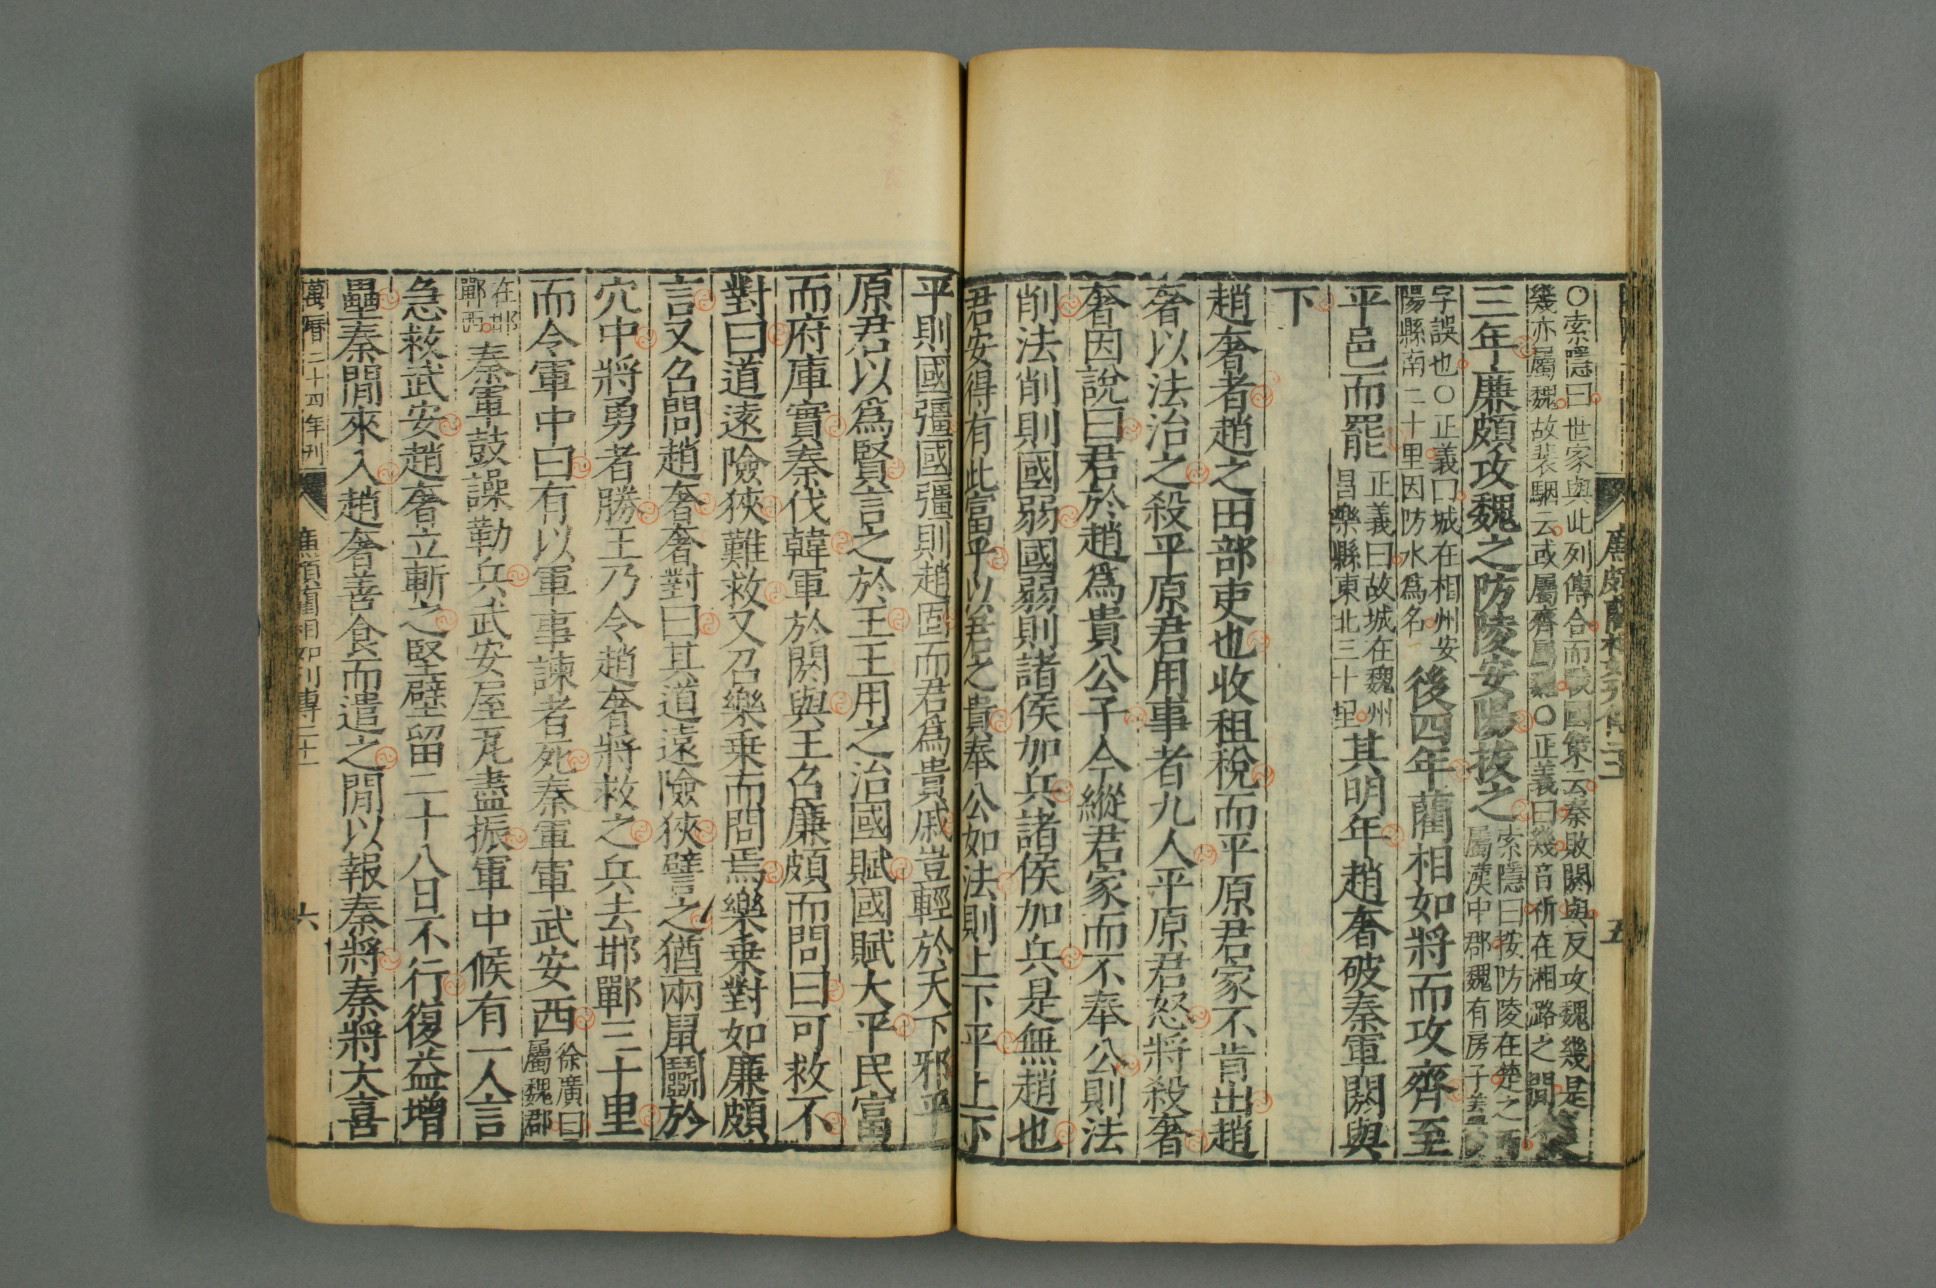 廉頗藺相如列傳二十一
五
○索隱曰世家與此列傳合而戰國策云秦敗閼與反攻魏幾是
幾亦屬魏故裴駰云或屬齊屬魏○正義曰幾音祈在湘潞之閒
後
三年廉頗攻魏之防陵安陽拔之
索隱曰按防陵在楚之西
屬漢中郡魏有房子
字誤也○正義曰城在相州安
陽縣南二十里因防水爲名
後四年藺相如將而攻齊至
平邑而罷
正義曰故城在魏州
昌樂縣東北三十里
其明年趙奢破秦軍閼與
下
趙奢者趙之田部吏也收租稅而平原君家不肯出趙
奢以法治之殺平原君用事者九人平原君怒將殺奢
奢因說曰君於趙爲貴公子今縱君家而不奉公則法
削法削則國弱國弱則諸侯加兵諸侯加兵是無趙也
君安得有此富乎以君之貴奉公如法則上下平上下
平則國彊國彊則趙固而君爲貴戚豈輕於天下邪平
原君以爲賢言之於王王用之治國賦國賦大平民富
而府庫實秦伐韓軍於閼與王召廉頗而問曰可救不
對曰道遠險狹難救又召樂乘而問焉樂乘對如廉頗
言又召問趙奢奢對曰其道遠險狹譬之猶兩鼠鬬於
穴中將勇者勝王乃令趙奢將救之兵去邯鄲三十里
而令軍中曰有以軍事諫者死秦軍軍武安西
徐廣曰
屬魏郡
在邯
鄲西
秦軍鼓譟勒兵武安屋瓦盡振軍中候有一人言
急救武安趙奢立斬之堅壁留二十八日不行復益增
壘秦閒來入趙奢善食而遣之閒以報秦將秦將大喜
萬曆二十四年刊
廉頗藺相如列傳二十一
六